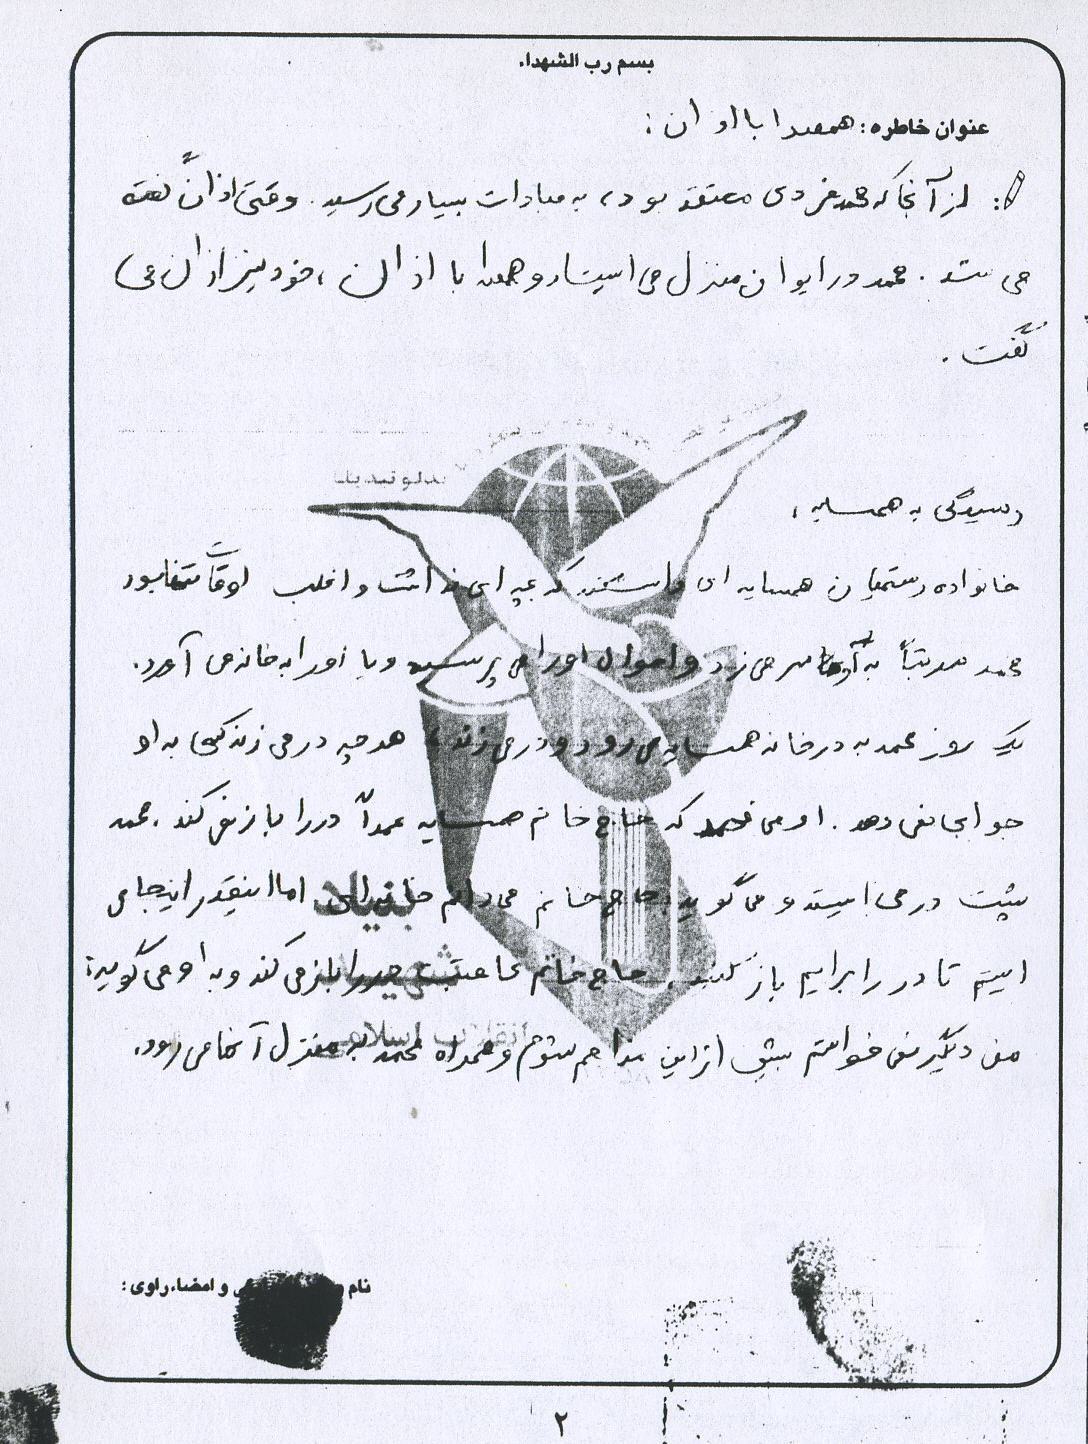 بسم رب الشهداء
عنوان خاطره: همصدا با اذان:
: از آنجا که محمد فردی معتقد بود، به عبادات بسیار می رسید. وقتی اذان گفته
می شد. محمد در ایوان منزل می ایستاد و همصدا با اذان، خود نیز اذان می
گفت.
رسیدگی به همسایه:
خانواده رستمیان همسایه ای داشتند که بچه ای نداشت و اغلب اوقات تنها بود
محمد مرتباً به آنها سر می زد و احوال او را می پرسید و یا او را به خانه می آورد.
یک روز محمد به در خانه همسایه می رود و در می زند، هر چه در می زند کسی به او
جوابی نمی دهد. او می فهمد که حاج خانم همسایه عمداً در را باز نمی کند. محمد
پشت در می ایستد و می گوید: حاج خانم می دانم خانه ای اما اینقدر اینجا می
ایستم تا در را برایم باز کنید. حاج خانم عاقبت در را باز می کند و به او می گوید:
من دیگر نمی خواستم بیش از این مزاحم شوم و همراه محمد به منزل آنها می رود.
بنیاد
شهید
انقلاب اسلامی
نام و امضاء راوی:
۲